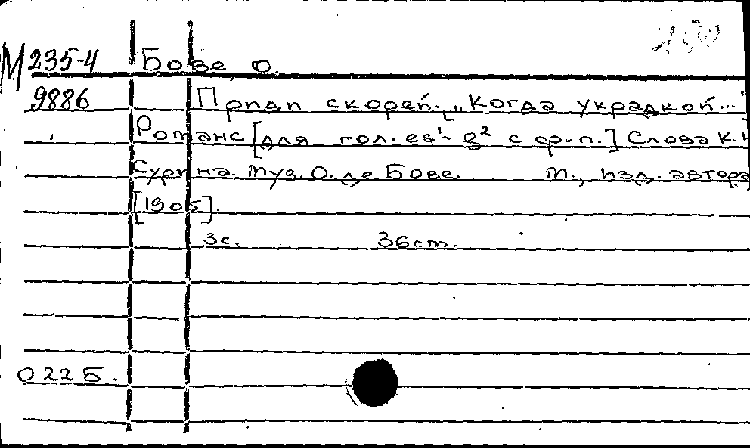 М 235-4 Бове О.
9886 Приди скорей. „Когда украдкой..."
Романс [для гол. es¹- g² с ф.-п.] Слова К.
на муз. О. де Бове. М., изд. автора
[1905].
3с. 36cm.
022Б.